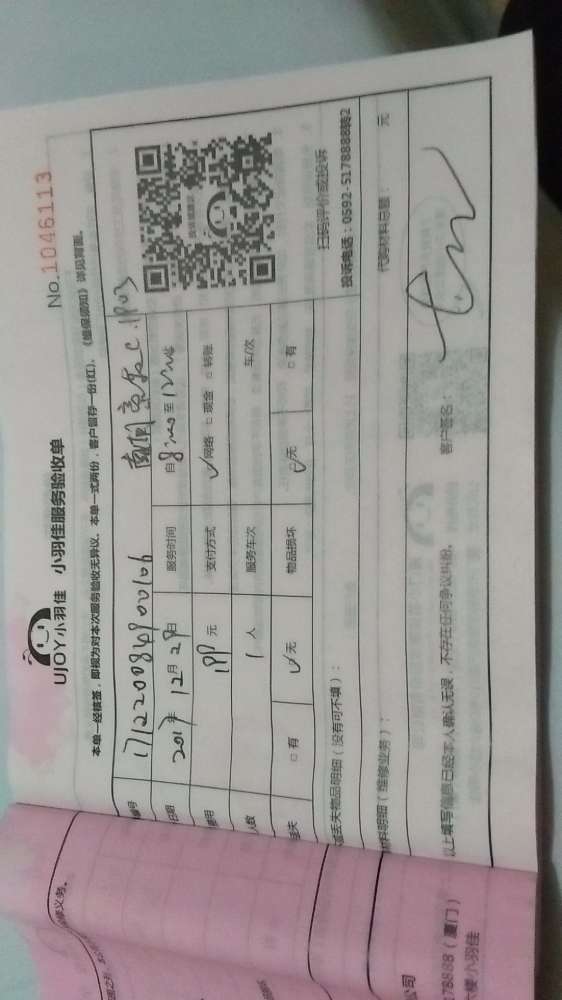 UJOY小羽佳 小羽佳服务验收单
No.10461113
本单一经核签，即视为对本次服务验收无异议，本单一式两份，客户留存一份(红)，《维保须知》详见背面。
编号
日期 2017年 12月 28日 服务时间 自8:00至12:00
费用 元 支付方式 ✓网络 □现金 □转账
人数 1 人 服务车次 车/次
丢失 □有 ✓无 物品损坏 ✓无 □有
扫码评价或投诉
投诉电话：0592-5178888转2
丢失物品明细（没有可不填）：
材料明细（维修业务）： 代购材料总额： 元
以上填写信息已经本人确认无误，不存在任何争议纠纷。 客户签名：
修义务。
公司
78888（厦门）
楼小羽佳